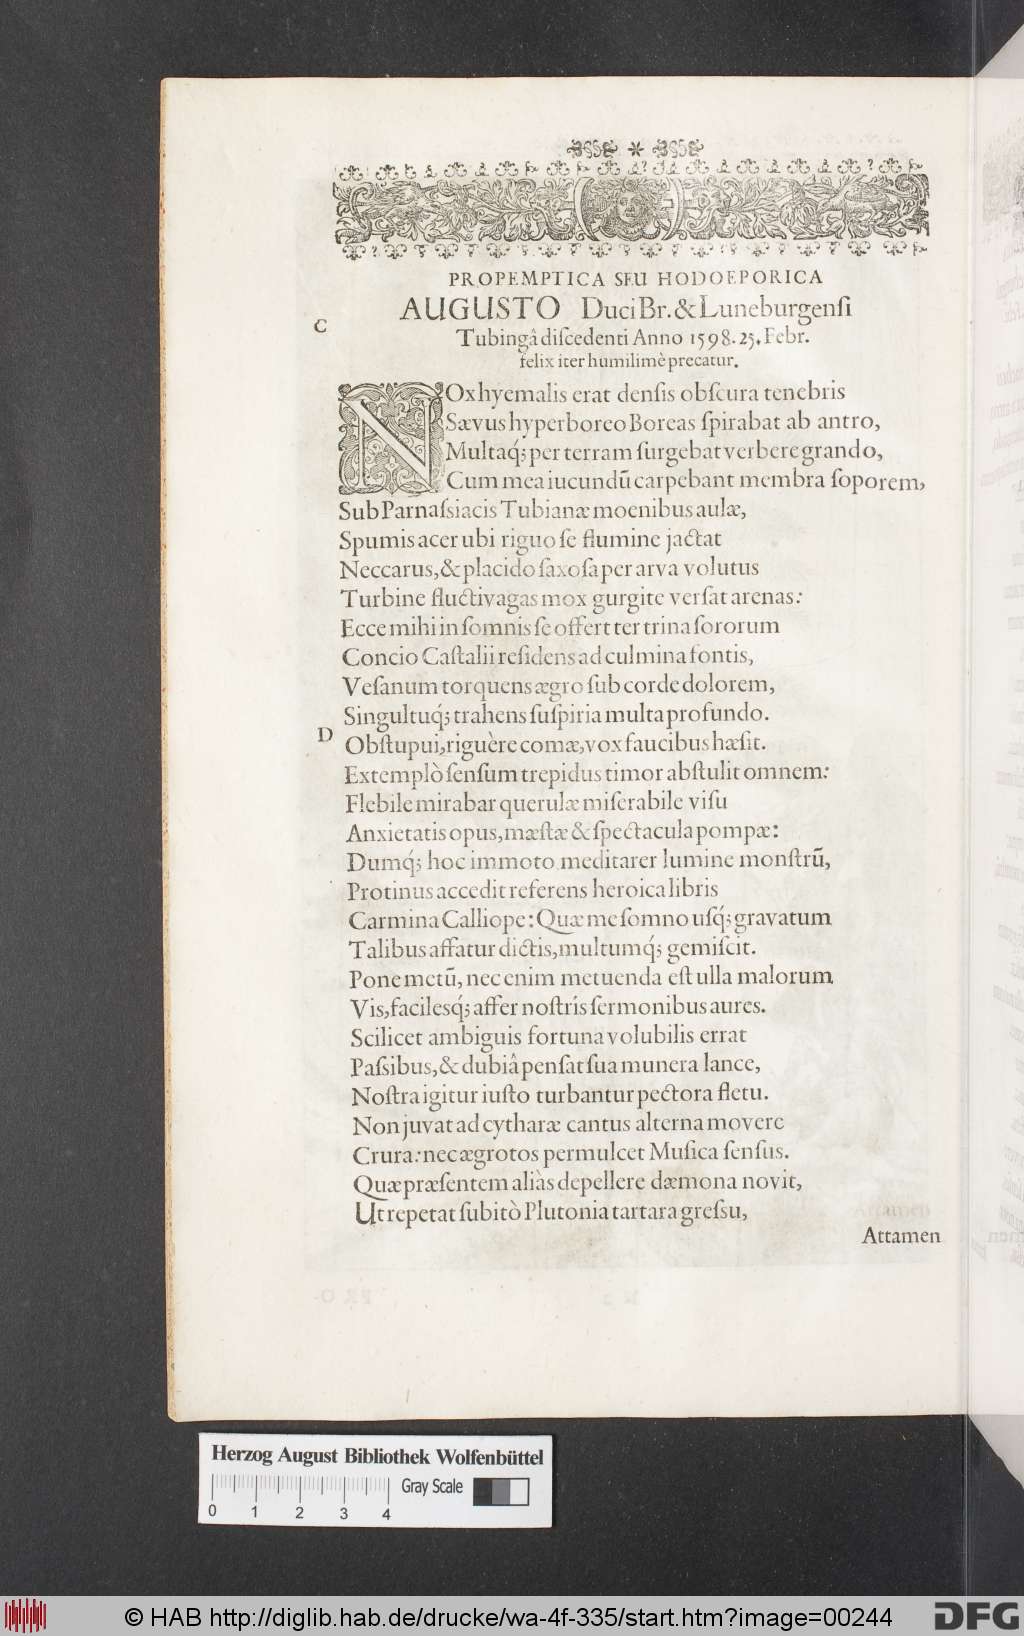 PROPEMPTICA SEU HODOEPORICA
AUGUSTO Duci Br. & Luneburgenſi
C
Tubingâ diſcedenti Anno 1598. 25. Febr.
felix iter humilimè precatur.
NOx hyemalis erat denſis obſcura tenebris
Sævus hyperboreo Boreas ſpirabat ab antro,
Multaq́; per terram ſurgebat verbere grando,
Cum mea iucundũ carpebant membra ſoporem,
Sub Parnaſsiacis Tubianæ moenibus aulæ,
Spumis acer ubi riguo ſe flumine jactat
Neccarus, & placido ſaxoſa per arva volutus
Turbine fluctivagas mox gurgite verſat arenas:
Ecce mihi in ſomnis ſe offert ter trina ſororum
Concio Caſtalii reſidens ad culmina fontis,
Veſanum torquens ægro ſub corde dolorem,
Singultuq́; trahens ſuſpiria multa profundo.
D
Obſtupui, riguère comæ, vox faucibus hæſit.
Extemplò ſenſum trepidus timor abſtulit omnem:
Flebile mirabar querulæ miſerabile viſu
Anxietatis opus, mæſtæ & ſpectacula pompæ:
Dumq́; hoc immoto meditarer lumine monſtrũ,
Protinus accedit referens heroica libris
Carmina Calliope: Quæ me ſomno uſq́; gravatum
Talibus affatur dictis, multumq́; gemiſcit.
Pone metũ, nec enim metuenda eſt ulla malorum
Vis, facilesq́; affer noſtris ſermonibus aures.
Scilicet ambiguis fortuna volubilis errat
Paſsibus, & dubiâ penſat ſua munera lance,
Noſtra igitur iuſto turbantur pectora fletu.
Non juvat ad cytharæ cantus alterna movere
Crura: nec ægrotos permulcet Muſica ſenſus.
Quæ præſentem aliàs depellere dæmona novit,
Ut repetat ſubitò Plutonia tartara greſsu,
Attamen
Herzog August Bibliothek Wolfenbüttel
Gray Scale
0 1 2 3 4
© HAB http://diglib.hab.de/drucke/wa-4f-335/start.htm?image=00244
DFG